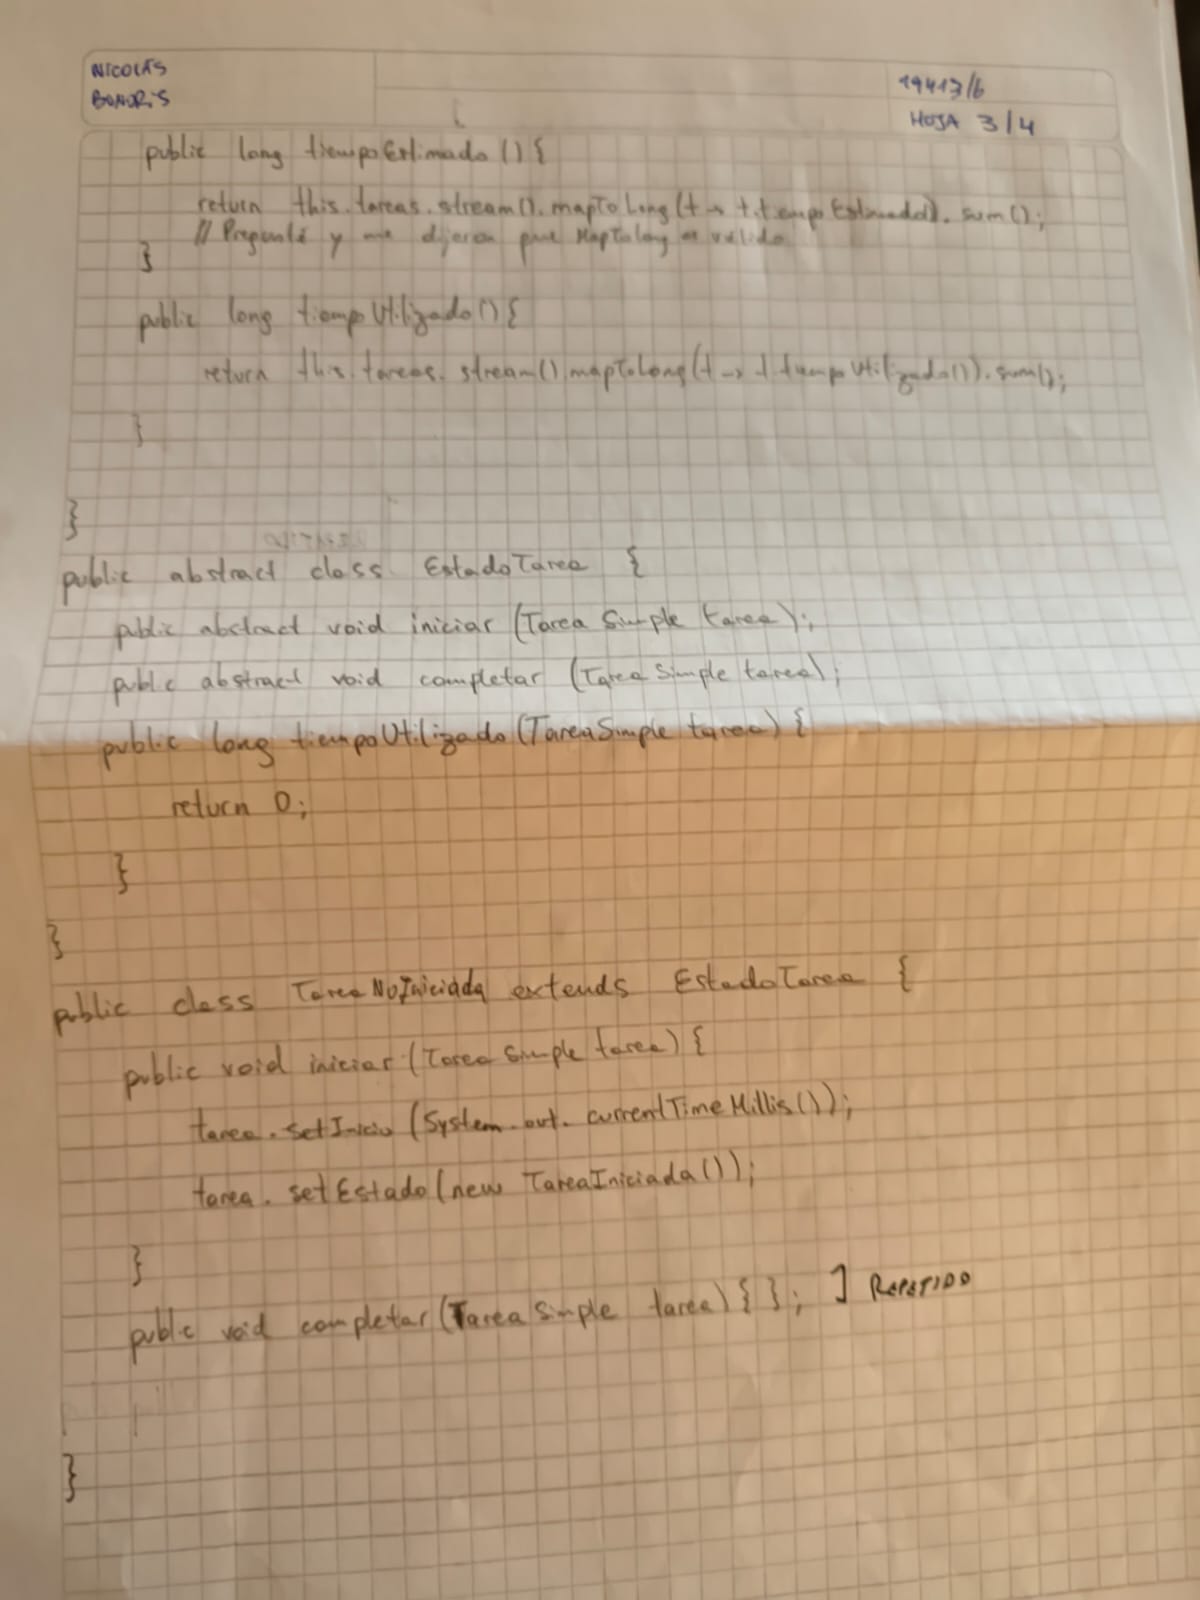 NICOLÁS
BONORIS
19413/6
HOJA 3/4
public long tiempoEstimado () {
return this.tareas.stream().mapToLong(t -> t.tiempoEstimado()).sum();
// Pregunté y me dijeron que MapToLong es válido
}
public long tiempoUtilizado() {
return this.tareas.stream().mapToLong(t -> t.tiempoUtilizado()).sum();
}
}
public abstract class EstadoTarea {
public abstract void iniciar (TareaSimple tarea);
public abstract void completar (TareaSimple tarea);
public long tiempoUtilizado(TareaSimple tarea) {
return 0;
}
}
public class TareaNoIniciada extends EstadoTarea {
public void iniciar (TareaSimple tarea) {
tarea.setInicio (System.out.currentTimeMillis());
tarea.setEstado(new TareaIniciada());
}
public void completar (TareaSimple tarea) { }; ] REPETIDO
}